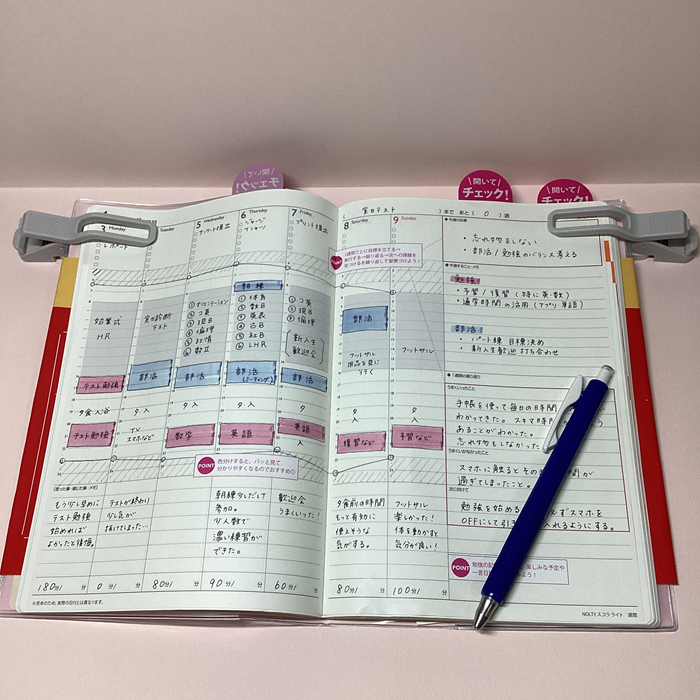 開いて
チェック!
開いて
チェック!
開いて
チェック!
実力テスト
まで あと ( 0 ) 週
3 Monday
5 Wednesday
6 Thursday
7 Friday
8 Saturday
9 Sunday
アンケート提出
ジャージ
Tシャツ
プリント提出
POINT
1週間ごとに目標を立てる→
実行する→振り返る→次への課題を
見つけるを繰り返して習慣づけよう!
忘れ物をしない
部活/勉強のバランス考える
勉強
・予習/復習(特に英数)
・通学時間の活用(アプリ 単語)
部活
・パート練 目標決め
・新入生歓迎 打ち合わせ
始業式
HR
実力診断
テスト
① オリエンテーション
② コ英
③ 現B
④ 倫理
⑤ 政情
⑥ 数II
朝練
① 体育
② 数B
③ 英表
④ 古B
⑤ 化B
⑥ LHR
① コ英
② 現B
③ 倫理
新入生
歓迎会
部活
フットサル
用品を見に
行く
フットサル
テスト勉強
部活
部活
部活
(ミーティング)
部活
夕食 入浴
夕 入
夕 入
夕 入
夕
入
夕
入
夕
入
テスト勉強
TV
スマホなど
数学
英語
英語
復習など
予習など
POINT
色分けすると、パッと見て
分かりやすくなるのでおすすめ
もう少し早めに
テスト勉強
始めれば
よかったと後悔。
テストが終わり
少し気が
抜けてしまった…
朝練少しだけ
参加。
少人数で
濃い練習が
できた。
歓迎会
うまくいった!
夕食前の時間
もっと有効に
使えそうな
気がする。
フットサル
楽しかった!
体を動かすと
気分が良い!
1週間の振り返り
うまくいったこと
手帳を使って毎日の時間
わかってきた。スキマ時間
あることがわかった。
忘れ物もしなかった
うまくいかなかったこと
スマホに触るとその 間が
過ぎてしまったこと。
次に向けて
勉強を始める ずスマホを
OFFにして引き 入れるようにする。
POINT
勉強の記 楽しみな予定や
一言日 よう!
180分/ 分
0分/ 分
80分/ 分
90分/ 分
60分/ 分
80分/ 分
100分/ 分
※見本のため、実際の日付とは異なります。
NOLTY スコラ ライト 週間